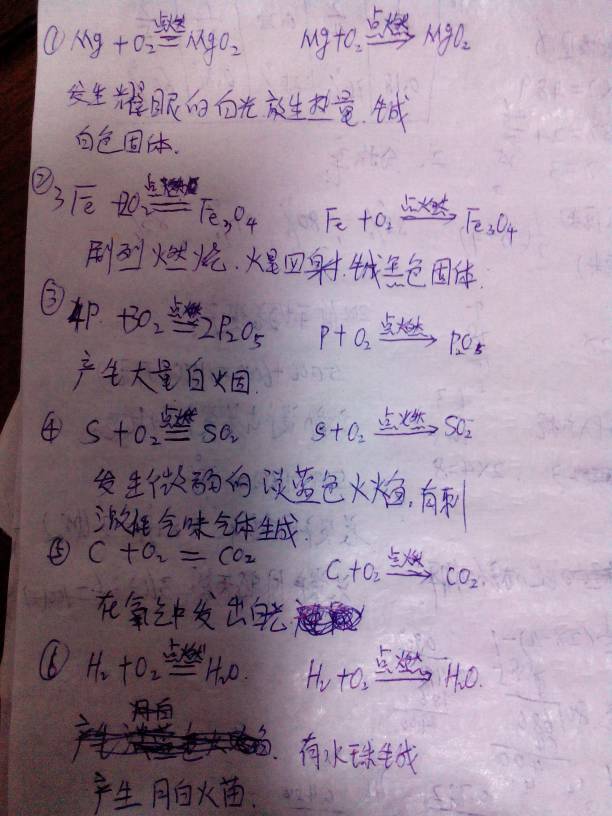 ① Mg + O₂ 点燃═ MgO₂ Mg+O₂ 点燃→ MgO₂
发生耀眼的白光.放生热量.生成
白色固体.
② 3Fe + 2O₂ 点燃═ Fe₃O₄ Fe + O₂ 点燃→ Fe₃O₄
剧烈燃烧.火星四射.生成黑色固体.
③ 4P. + 3O₂ 点燃═ 2P₂O₅ P + O₂ 点燃→ P₂O₅
产生大量白火因.
④ S + O₂ 点燃═ SO₂ S+O₂ 点燃→ SO₂
发生微弱的淡蓝色火焰,有刺
激性气味气体生成.
⑤ C + O₂ = CO₂ C+O₂ 点燃→ CO₂.
在氧气中发出白光
⑥ H₂ + O₂ 点燃═ H₂O. H₂ + O₂ 点燃→ H₂O.
有水珠生成
产生月白火苗.